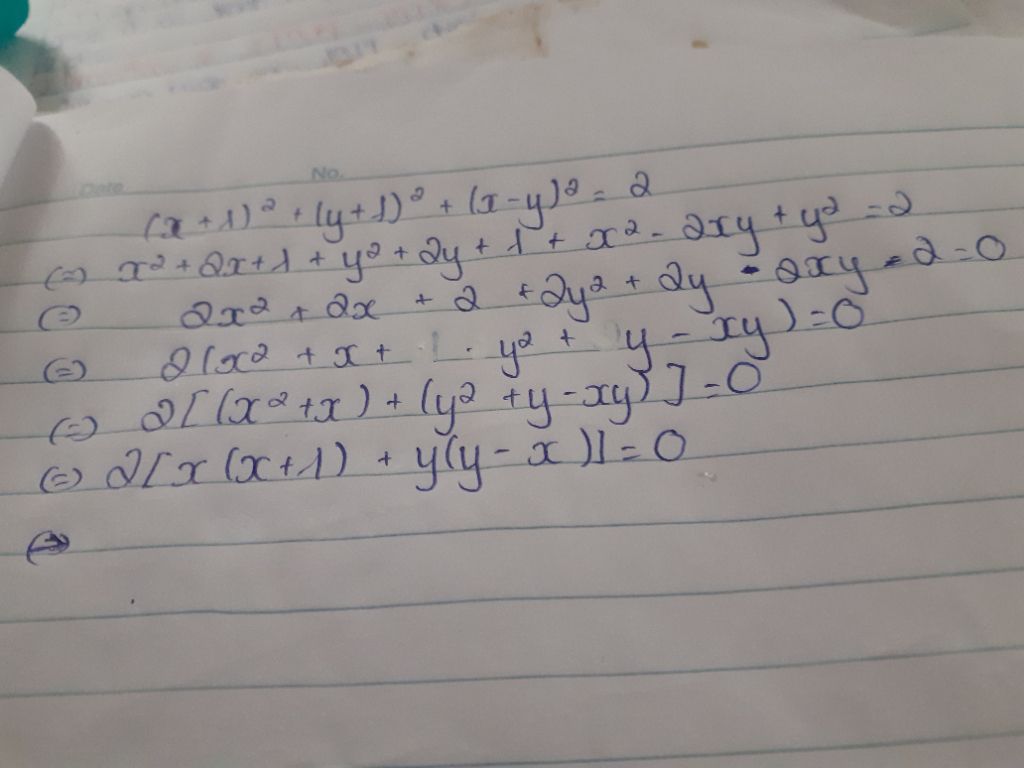 Date No.
(x+1)² + (y+1)² + (x-y)² = 2
(=) x² + 2x + 1 + y² + 2y + 1 + x² - 2xy + y² = 2
(=) 2x² + 2x + 2 + 2y² + 2y - 2xy - 2 = 0
(=) 2(x² + x + y² + y - xy) = 0
(=) 2[(x²+x) + (y² + y - xy)] = 0
(=) 2[x(x+1) + y(y-x)] = 0